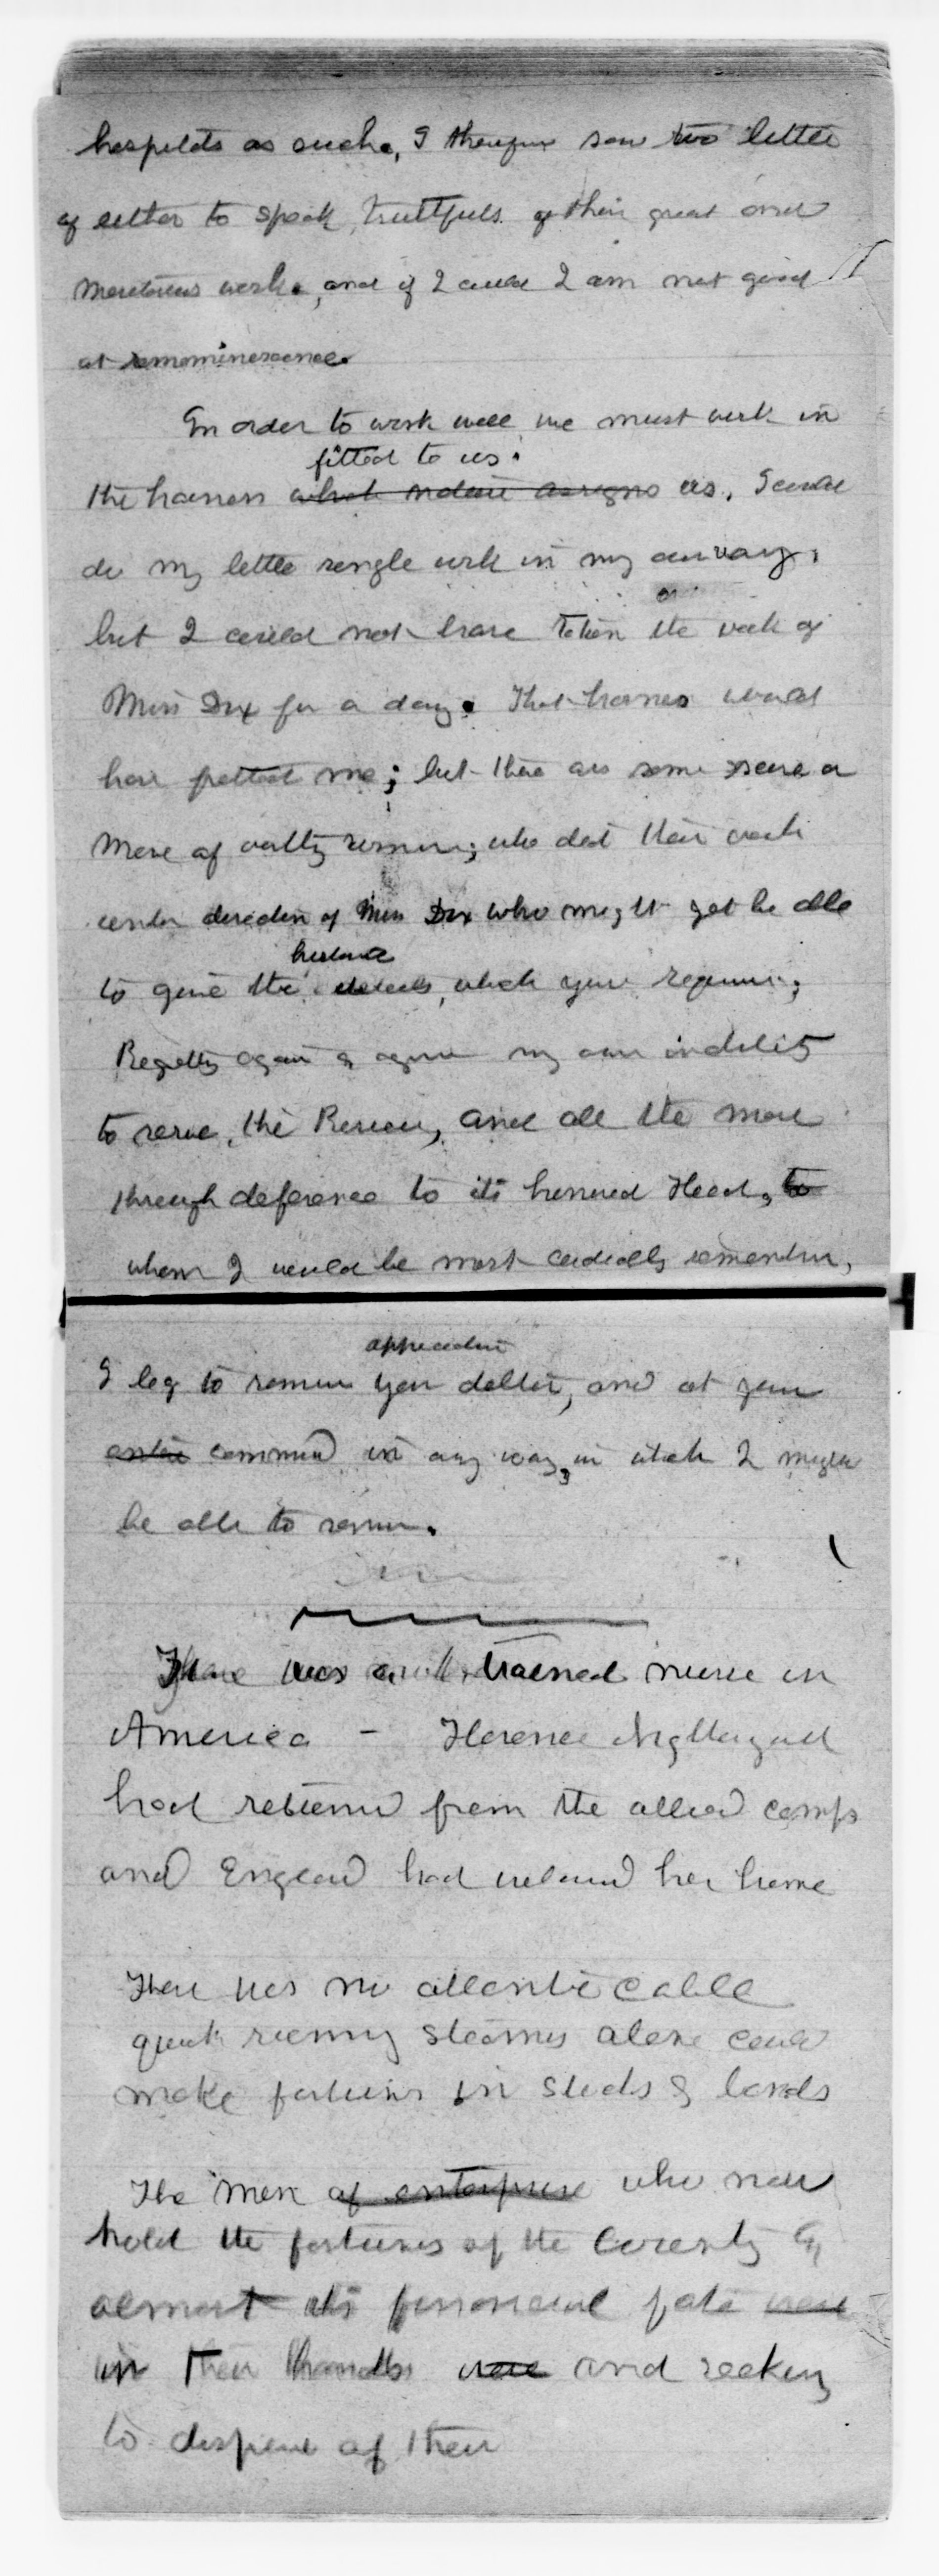 hospitals as such, I therefore saw too little
of either to speak truthfuls of their great and
meritorious work, and if I could I am not good
at remominescence.
In order to work well, we must work in
fitted to us.
the harness what nature assigns us. I could
do my little single work in my own way,
but I could not have taken the work of
Miss Dix for a day. That harness would
have fretted me; but there are some score or
more of worthy women, who did their work
under direction of Miss Dix who might yet be able
to give the details, which you require;
Regretting again & again my own inability
to serve, the Bureau, and all the more
through deference to its honored Head, to
whom I would be most cordially remember,
appreciative
I beg to remain your debtor, and at your
entire command in any way, in which I might
be able to serve.
There was a trained nurse in
America - Florence Nightingale
had returned from the allied camps
and England had welcomed her home
There was no atlantic cable
quick running steamers alone could
make fortunes in stocks & bonds
The men of enterprise who now
hold the fortunes of the Country &
almost its financial fate were
in their hands were and seeking
to dispose of their